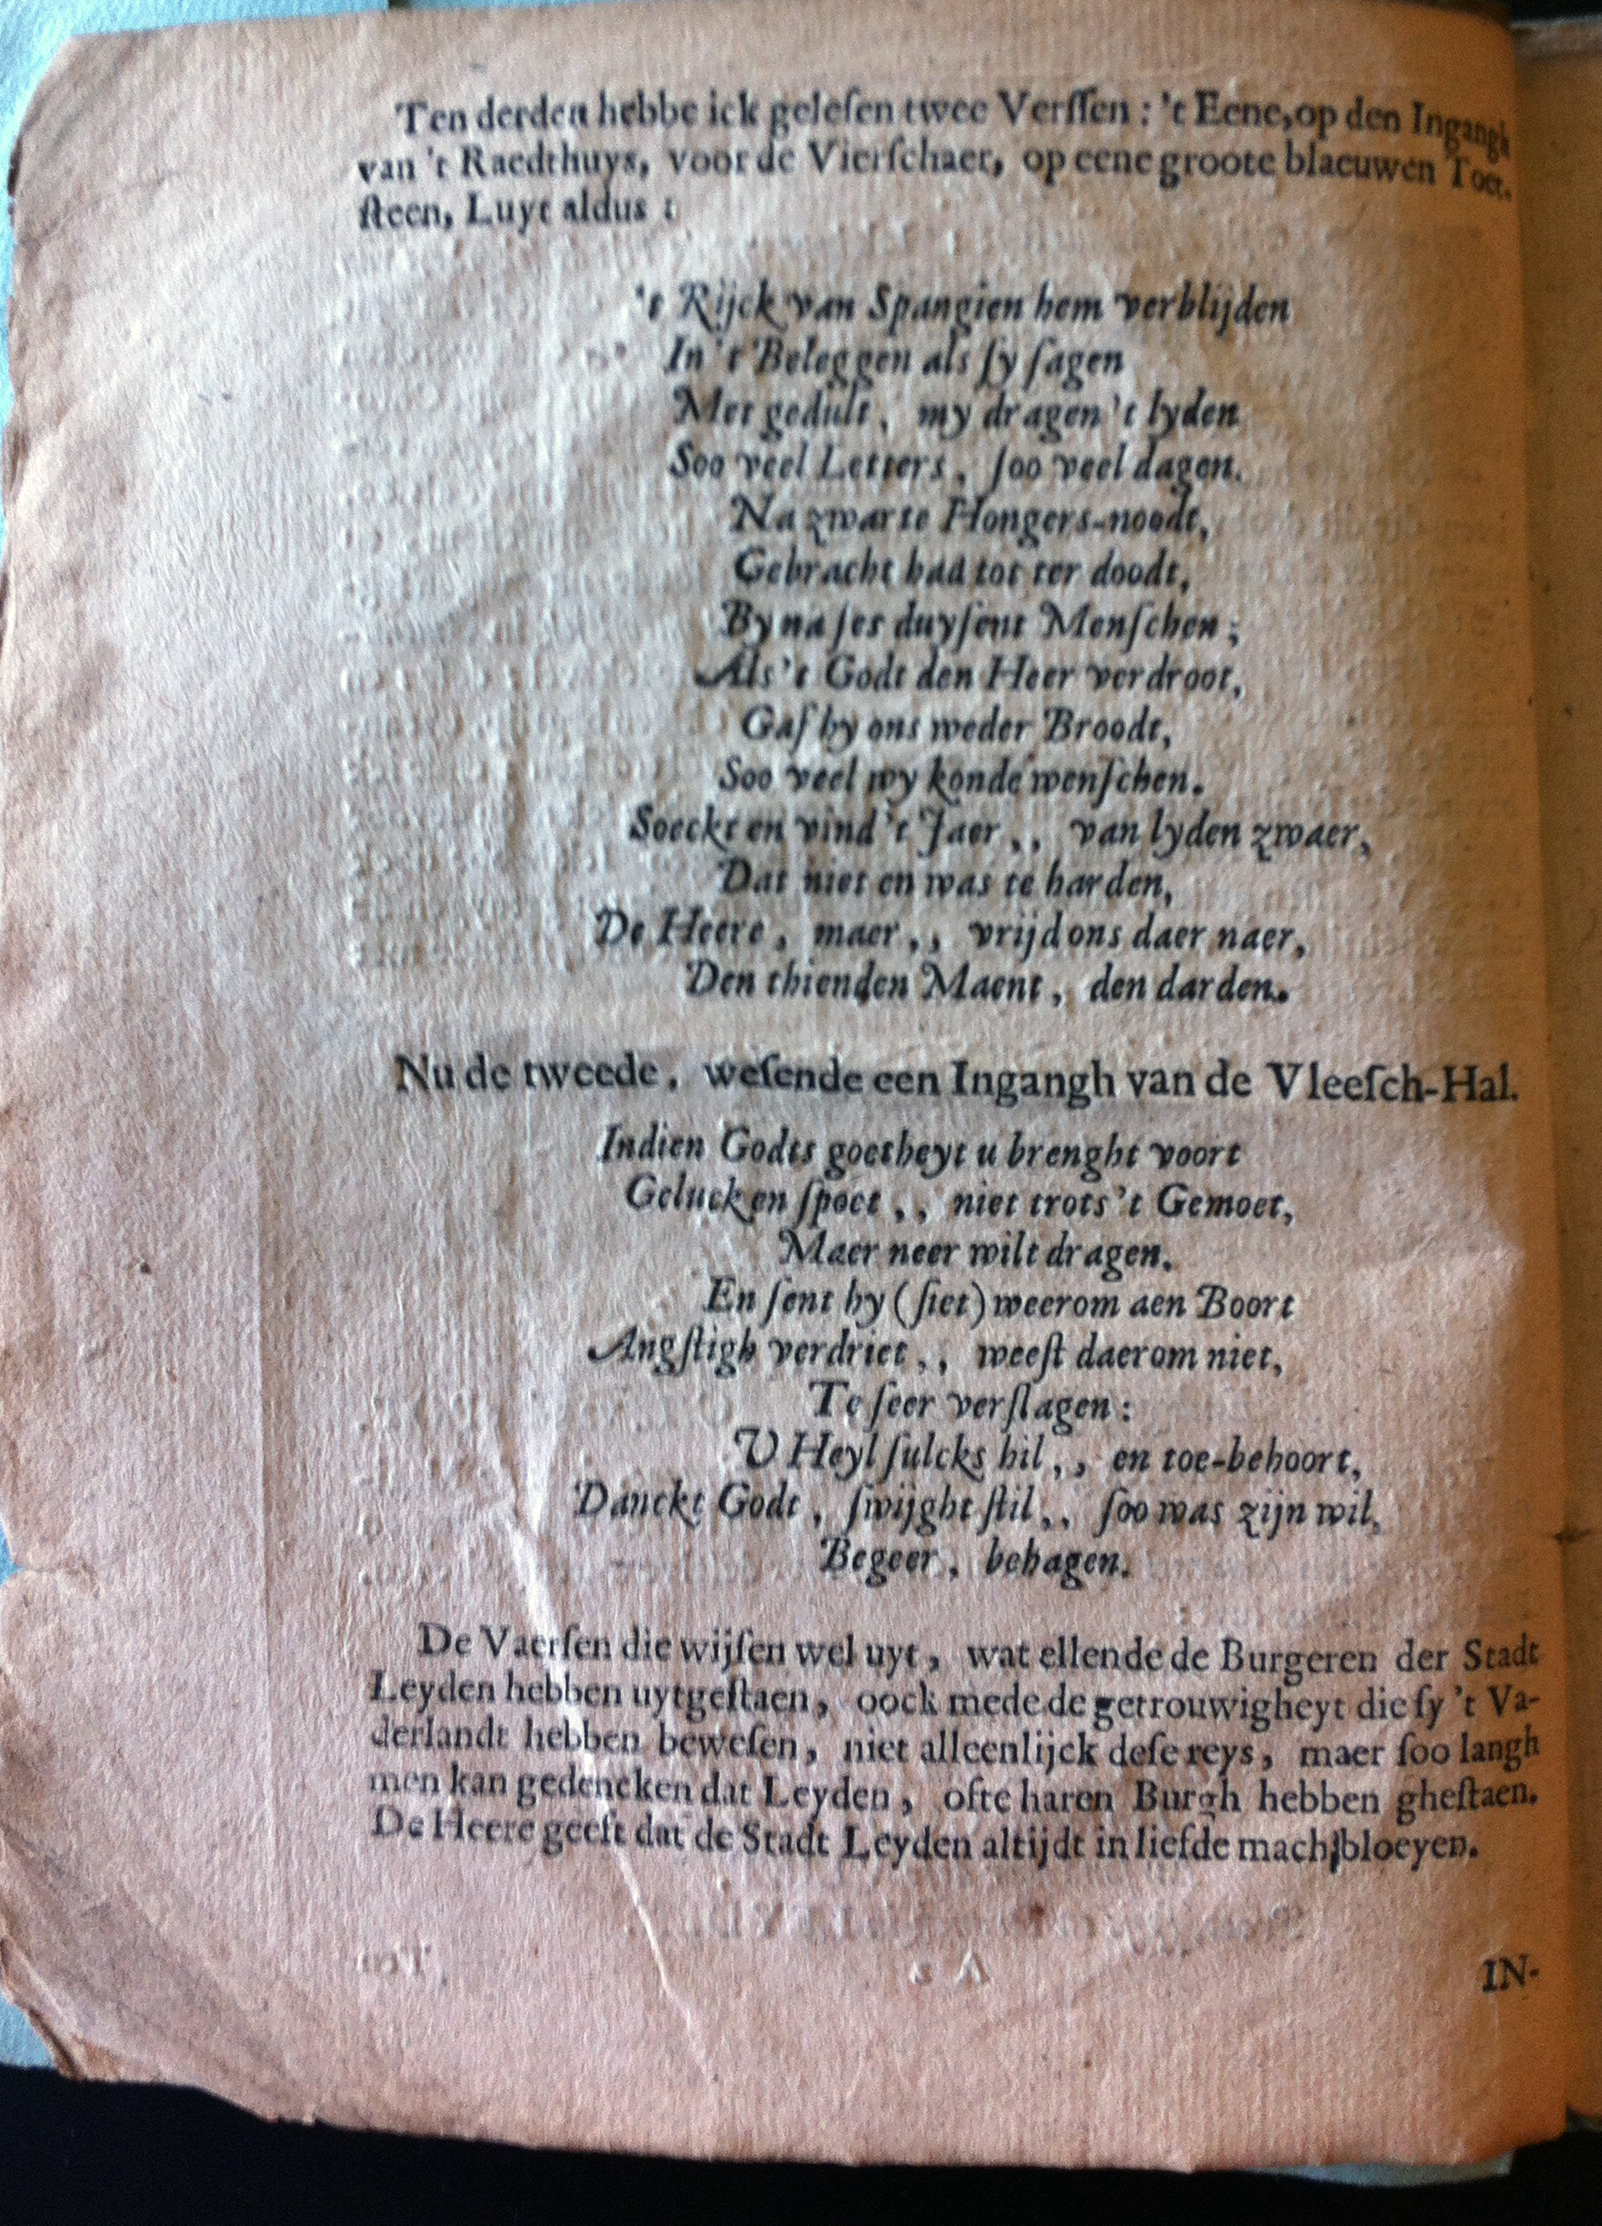 Ten derden hebbe ick geleſen twee Verſſen: 't Eene, op den Ingangh
van 't Raedthuys, voor de Vierſchaer, op eene groote blaeuwen Toet-
ſteen, Luyt aldus:
't Rijck van Spangien hem verblijden
In 't Beleggen als ſy ſagen
Met gedult, my dragen 't lyden
Soo veel Letters, ſoo veel dagen.
Na zwarte Hongers-noodt,
Gebracht had tot ter doodt,
By na ſes duyſent Menſchen;
Als 't Godt den Heer verdroot,
Gaf hy ons weder Broodt,
Soo veel wy konde wenſchen.
Soeckt en vind 't Jaer,, van lyden zwaer,
Dat niet en was te harden,
De Heere, maer,, vrijd ons daer naer,
Den thienden Maent, den darden.
Nu de tweede, weſende een Ingangh van de Vleeſch-Hal.
Indien Godts goetheyt u brenght voort
Geluck en ſpoet,, niet trots 't Gemoet,
Maer neer wilt dragen.
En ſent hy (ſiet) weerom aen Boort
Angſtigh verdriet,, weeſt daerom niet,
Te ſeer verſlagen:
U Heyl ſulcks hil,, en toe-behoort,
Danckt Godt, ſwijght ſtil,, ſoo was zijn wil,
Begeer, behagen.
De Vaerſen die wijſen wel uyt, wat ellende de Burgeren der Stadt
Leyden hebben uytgeſtaen, oock mede de getrouwigheyt die ſy 't Va-
derlandt hebben beweſen, niet alleenlijck deſe reys, maer ſoo langh
men kan gedencken dat Leyden, ofte haren Burgh hebben gheſtaen.
De Heere geeft dat de Stadt Leyden altijdt in liefde mach bloeyen.
IN-